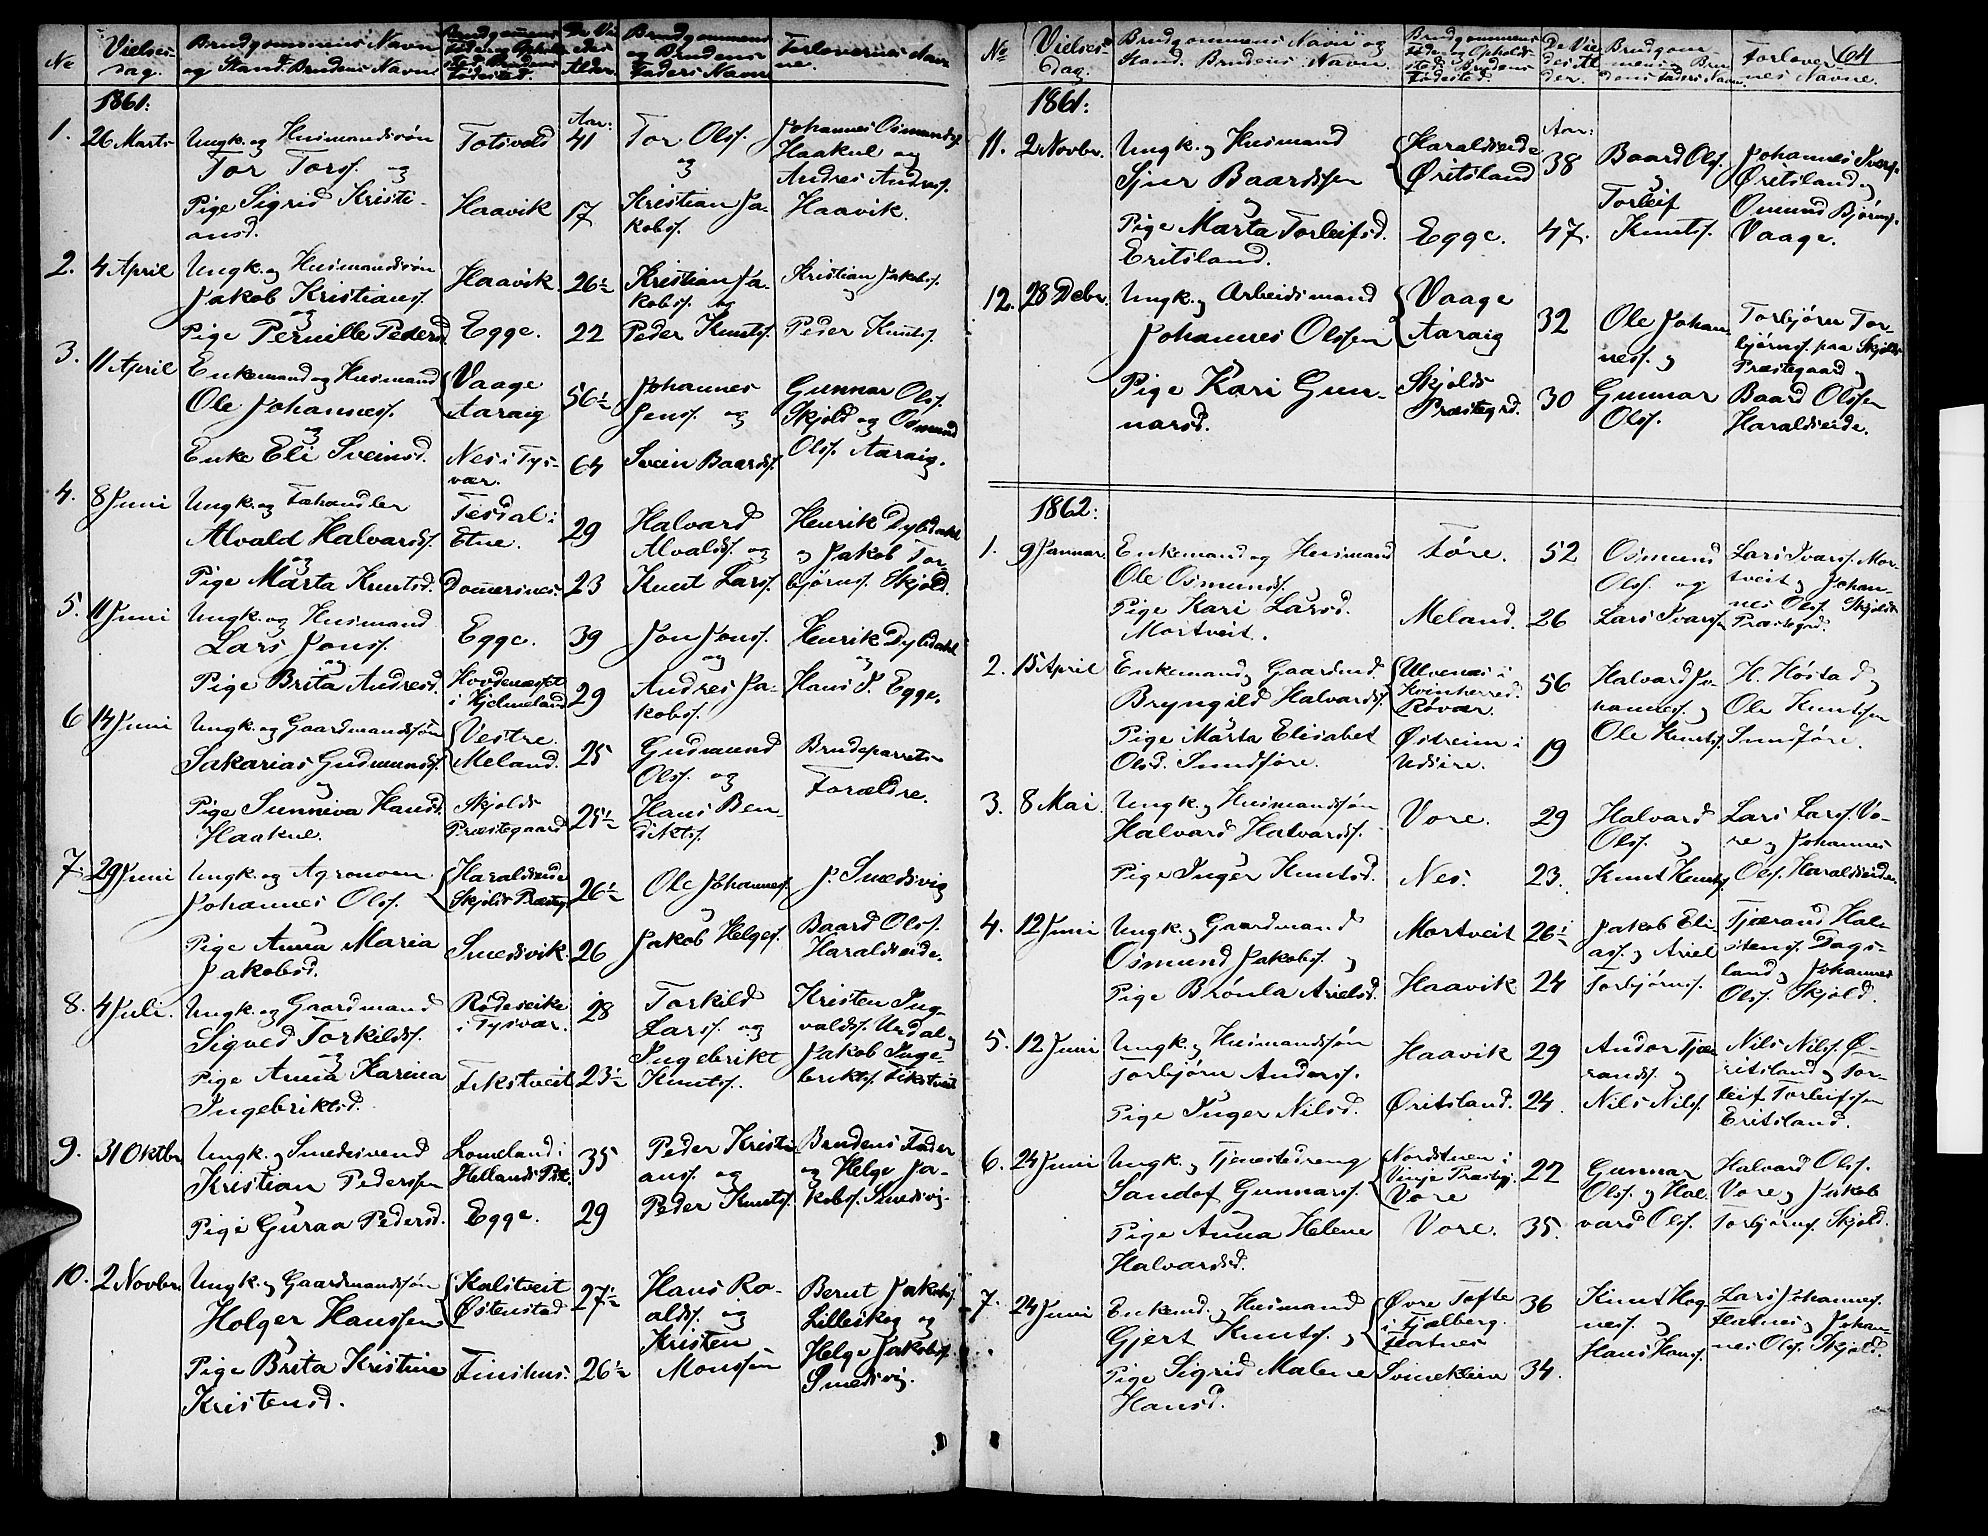 No
Vielses-
dag.
Brudgommens Navn
og Stand. Brudens Navn
Brudgommens
Føde og Opholds
sted. Brudens
Fødested.
De Vi
edes
Alder.
Brudgommens
og Brudens
Faders Navn
Forlovernes Nav
ne.
1861:
1. 26 Marts
Ungk. og Husmandssøn
Tor Torss. og
Pige Sigrid Kristi-
ansd.
Totsvold
Haavik
Aar:
41
17
Tor Olss.
og
Kristian Ja-
kobss.
Johannes Osmundss.
Haakul og
Andres Andress.
Haavik.
2. 4 April
Ungk. og Husmandssøn
Jakob Kristianss.
og
Pige Pernille Pedersd.
Haavik
Egge.
26½
22
Kristian Ja-
kobss. og
Peder Knutss.
Kristian Jakobss.
og
Peder Knutss.
3. 11 April
Enkemand og Husmand
Ole Johanness.
og
Enke Eli Sveinsd.
Vaage
Aaraig
Nes i Tys-
vær.
56½
64
Johannes
Jenss. og
Svein Baardss.
Gunnar Olss.
Skjold og Osmund
Olss. Aaraig.
4. 8 Juni
Ungk. og Fæhandler
Alvald Halvardss.
og
Pige Marta Knutsd.
Tesdal i
Etne.
Dommersnes.
29
23
Halvard
Alvaldss. og
Knut Larss.
Henrik Dybsdahl
og Jakob Tor
bjørnss. Skjold.
5. 11 Juni
Ungk. og Husmand
Lars Jonss.
og
Pige Brita Andresd.
Egge.
Hovdenesset
i Hjelmeland
39
29
Jon Jonss.
og
Andres Ja-
kobss.
Henrik Dybsdahl
og
Hans P. Egge.
6 14 Juni
Ungk. og Gaardmandssøn
Sakarias Gudmunss.
og
Pige Sunneva Hansd.
Haakul.
Vestre
Meland.
Skjolds
Præstegaard
25
25½
Gudmund
Olss. og
Hans Ben
diktss.
Brudeparrets
Forældre.
7. 29 Juni
Ungk. og Agronom
Johannes Olss.
og
Pige Anna Maria
Jakobsd.
Haraldseide
Skjolds Præstgd.
Smedsvik.
26½
26
Ole Johanness.
og
Jakob Helgess.
J. Smedsvig
Baard Olss.
Haraldseide.
8. 4 Juli.
Ungk. og Gaardmand
Sigved Torkildss.
og
Pige Anna Karina
Ingebriktsd.
Rødseike
i Tysvær.
Fikstveit
28
23½
Torkild
Larss. og
Ingebrikt
Knutss.
Kristen Ing-
valdss. Urdal og
Jakob Inge-
briktss. Fikstveit
9. 31 Oktbr
Ungk. og Smedesvend
Kristian Pederssen
Pige Guraa Pedersd.
Lomeland i
Hellands Pstg.
Egge.
35
29
Peder Kristi
anss. og
Peder Knutss.
Brudens Fader
og Helge Ja-
kobss. Smedsvig.
10. 2 Novbr.
Ungk. og Gaardmandssøn
Holger Hanssen
og
Pige Brita Kristine
Kristensd.
Kalstveit
Østenstad
Finshus:
27½
26½
Hans Ro-
aldss. og
Kristen
Monssen
Bernt Jakobss.
Lilleskog og
Helge Jakobss.
Smedsvig.
64
No
Vielses
dag.
Brudgommens Navn og
Stand. Brudens Navn.
Brudgommens
Føde og Opholds
sted. Brudens
Fødested.
De Vie
des Al
der.
Brudgom-
mens og Bru
dens Faders Navn.
Forlover
nes Navne.
1861:
11. 2 Novbr.
Ungk. og Husmand
Sjur Baardssen
og
Pige Marta Torleifsd.
Eritsland.
Haraldseide
Øritsland
Egge.
Aar:
38
47.
Baard Olss.
og
Torleif
Knutss.
Johannes Iverss.
Øritsland og
Omund Bjørnss.
Vaage.
12. 28 Debr.
Ungk. og Arbeidsmand
Johannes Olssen
Pige Kari Gun-
narsd.
Vaage
Aaraig
Skjolds
Præstegrd.
32
30
Ole Johan
ness. og
Gunnar
Olss.
Torbjørn Tor-
bjørnss. paa Skjolds
Præstegaard og
Baard Olssen
Haraldseide.
1862:
1. 9 Januar.
Enkemand og Husmand
Ole Osmundss.
Pige Kari Larsd.
Mortveit.
Føre.
Meland.
52
26
Osmund
Olss. og
Lars Ivarssen
Lars Ivarss. Mor-
tveit og Johan-
nes Olss. Skjolds
Præstegrd.
2. 15 April
Enkemand og Gaardmd.
Bryngild Halvardss.
Pige Marta Elisabet
Olsd. Sundføre.
Ulvenes i
Kvinherred.
Røvær.
Østreim i
Udsire.
56
19
Halvard Jo
hanness. og
Ole Knutss.
H. Høstad og
Ole Knutssen
Sundføre.
3. 8 Mai.
Ungk. og Husmandssøn
Halvard Halvardss.
Pige Inger Knutsd.
Vore.
Nes.
29
23.
Halvard
Olss. og
Knut Knutss.
Lars Larss. Vo-
re og Johannes
Olss. Haraldseide.
4. 12 Juni
Ungk. og Gaardmand
Osmund Jakobss. og
Pige Brønla Arielsd.
Mortveit
Haavik
26½
24
Jakob Eli
ass. og Ariel
Torbjørnss.
Tjærand Hal-
stenss. Dags-
land og Johannes
Olss. Skjold.
5. 12 Juni
Ungk. og Husmandssøn
Torbjørn Anderss.
Pige Inger Nilsd.
Haavik
Øritsland.
29
24.
Ander Tjæ
randss. og
Nils Nilss.
Nils Nilss. Ø-
ritsland og Tor-
leif Torleifssen
Eritsland.
6. 24 Juni
Ungk. og Tjenestedreng
Sandof Gunnarss.
og
Pige Anna Helene
Halvardsd.
Nordstuen i
Vinje Præstgj.
Vore
Vore.
22
35.
Gunnar
Olss. og Hal
vard Olss.
Halvard Olss.
Vore og Jakob
Torbjørnss. Skjold.
7. 24 Juni
Enkemd. og Husmand
Gjert Knutss. og
Pige Sigrid Malene
Hansd.
Øvre Tofte
i Fjælberg.
Flatnes
Svineklein
36
34.
Knut Hog
ness. og
Hans Hanss.
Lars Johanness.
Flatnes og Johan-
nes Olss. Skjold.